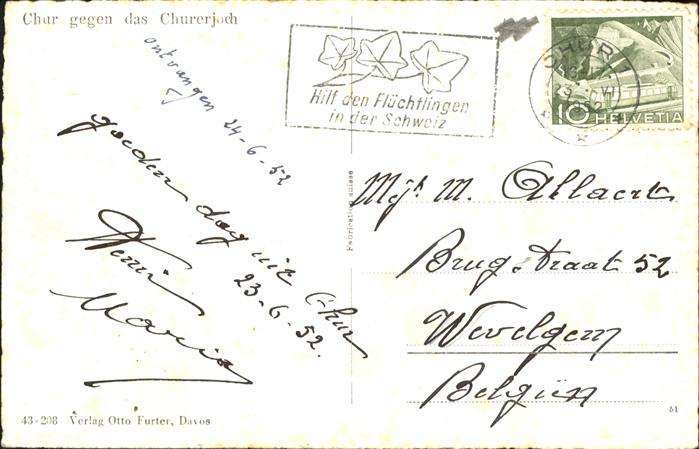 Chur gegen das Churerjoch
ontvangen 24-6-52
goeden dag uit Chur
23-6-52.
Maria
43-208 Verlag Otto Furter, Davos
Hilf den Flüchtlingen
in der Schweiz
CHUR 1
10 HELVETIA
Fabrication suisse
M. Allaert
Brug. straat 52
Wevelgem
Belgien
51